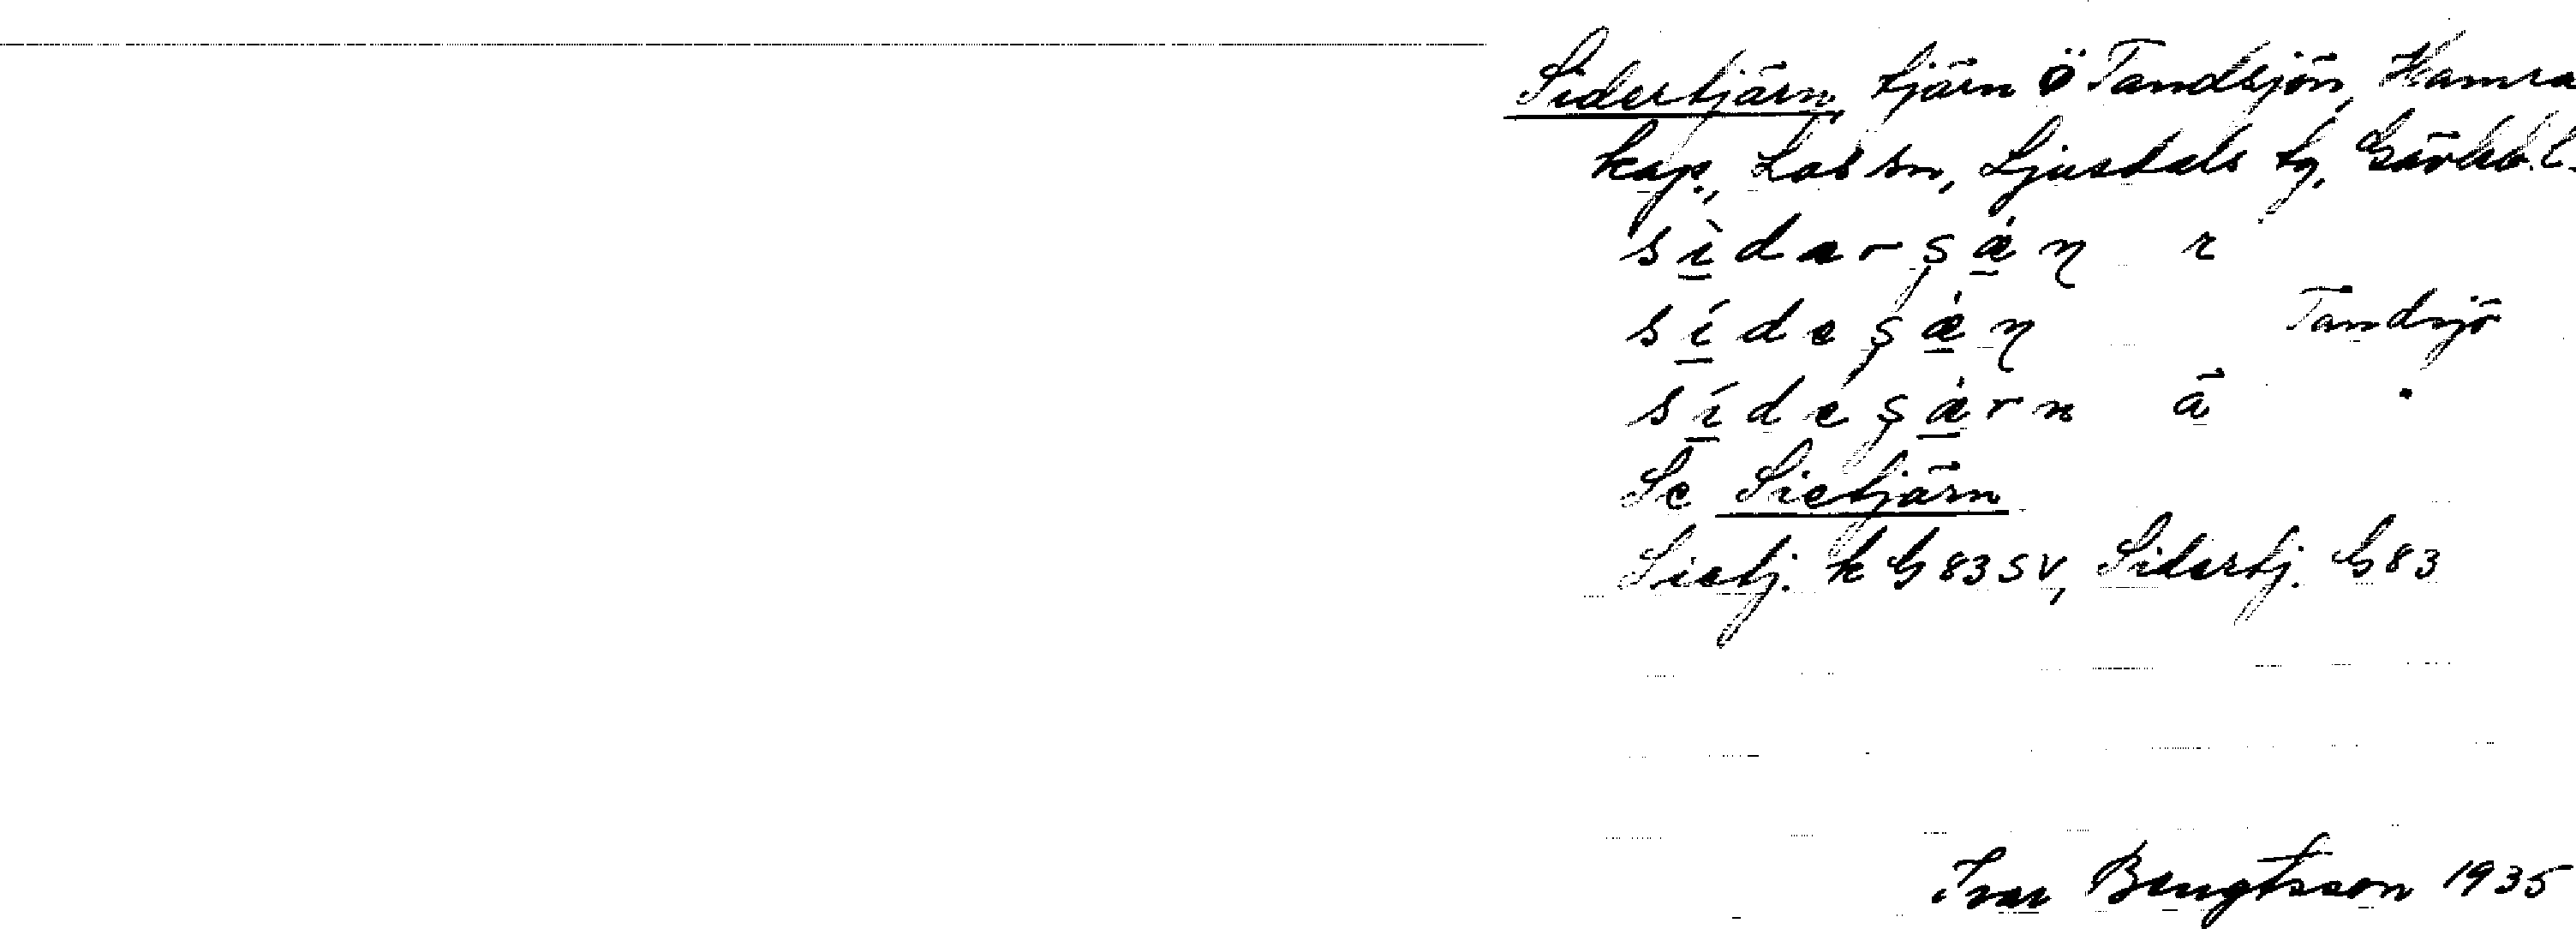 Sidertjärn, tjärn ö Tandsjön, Hamra
kap., Los sn, Ljusdals tg, Gävleb. l.
sìdarşȧɳ r
sídeşæ̇ɳ Tandsjö
sídeşæ̇rn ä "
Se Sietjärn
Sietj. k G 83 SV, Sidertj. G 83
Ivar Bengtsson 1935